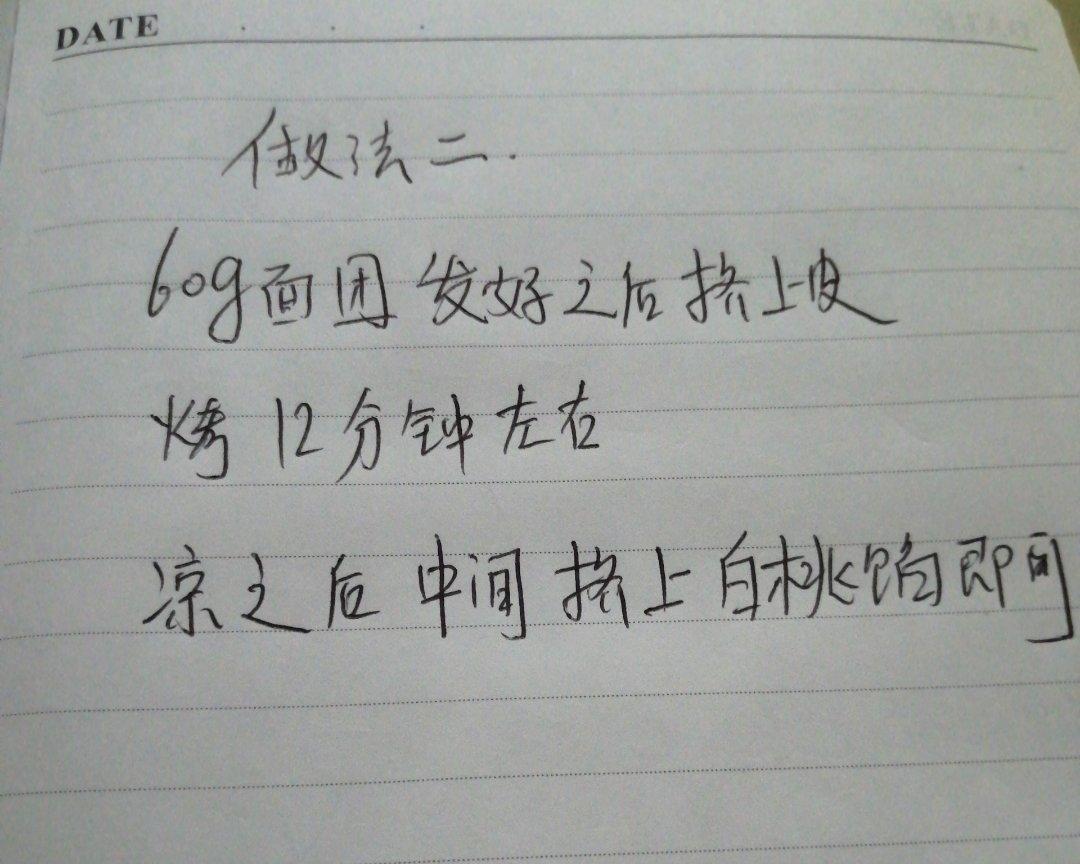 DATE
做法二.
60g面团 发好之后 挤上皮
烤 12分钟 左右
凉之后 中间 挤上 白桃馅即可